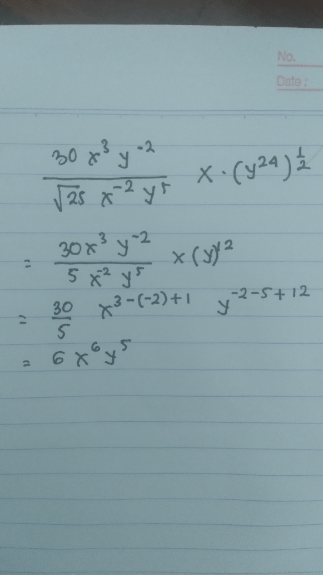 No.
Date :
30 x³ y⁻² / √25 x⁻² y⁵ x · (y²⁴)^½
= 30x³ y⁻² / 5 x⁻² y⁵ x (y)¹²
= 30/5 x³⁻⁽⁻²⁾⁺¹ y⁻²⁻⁵⁺¹²
= 6 x⁶ y⁵